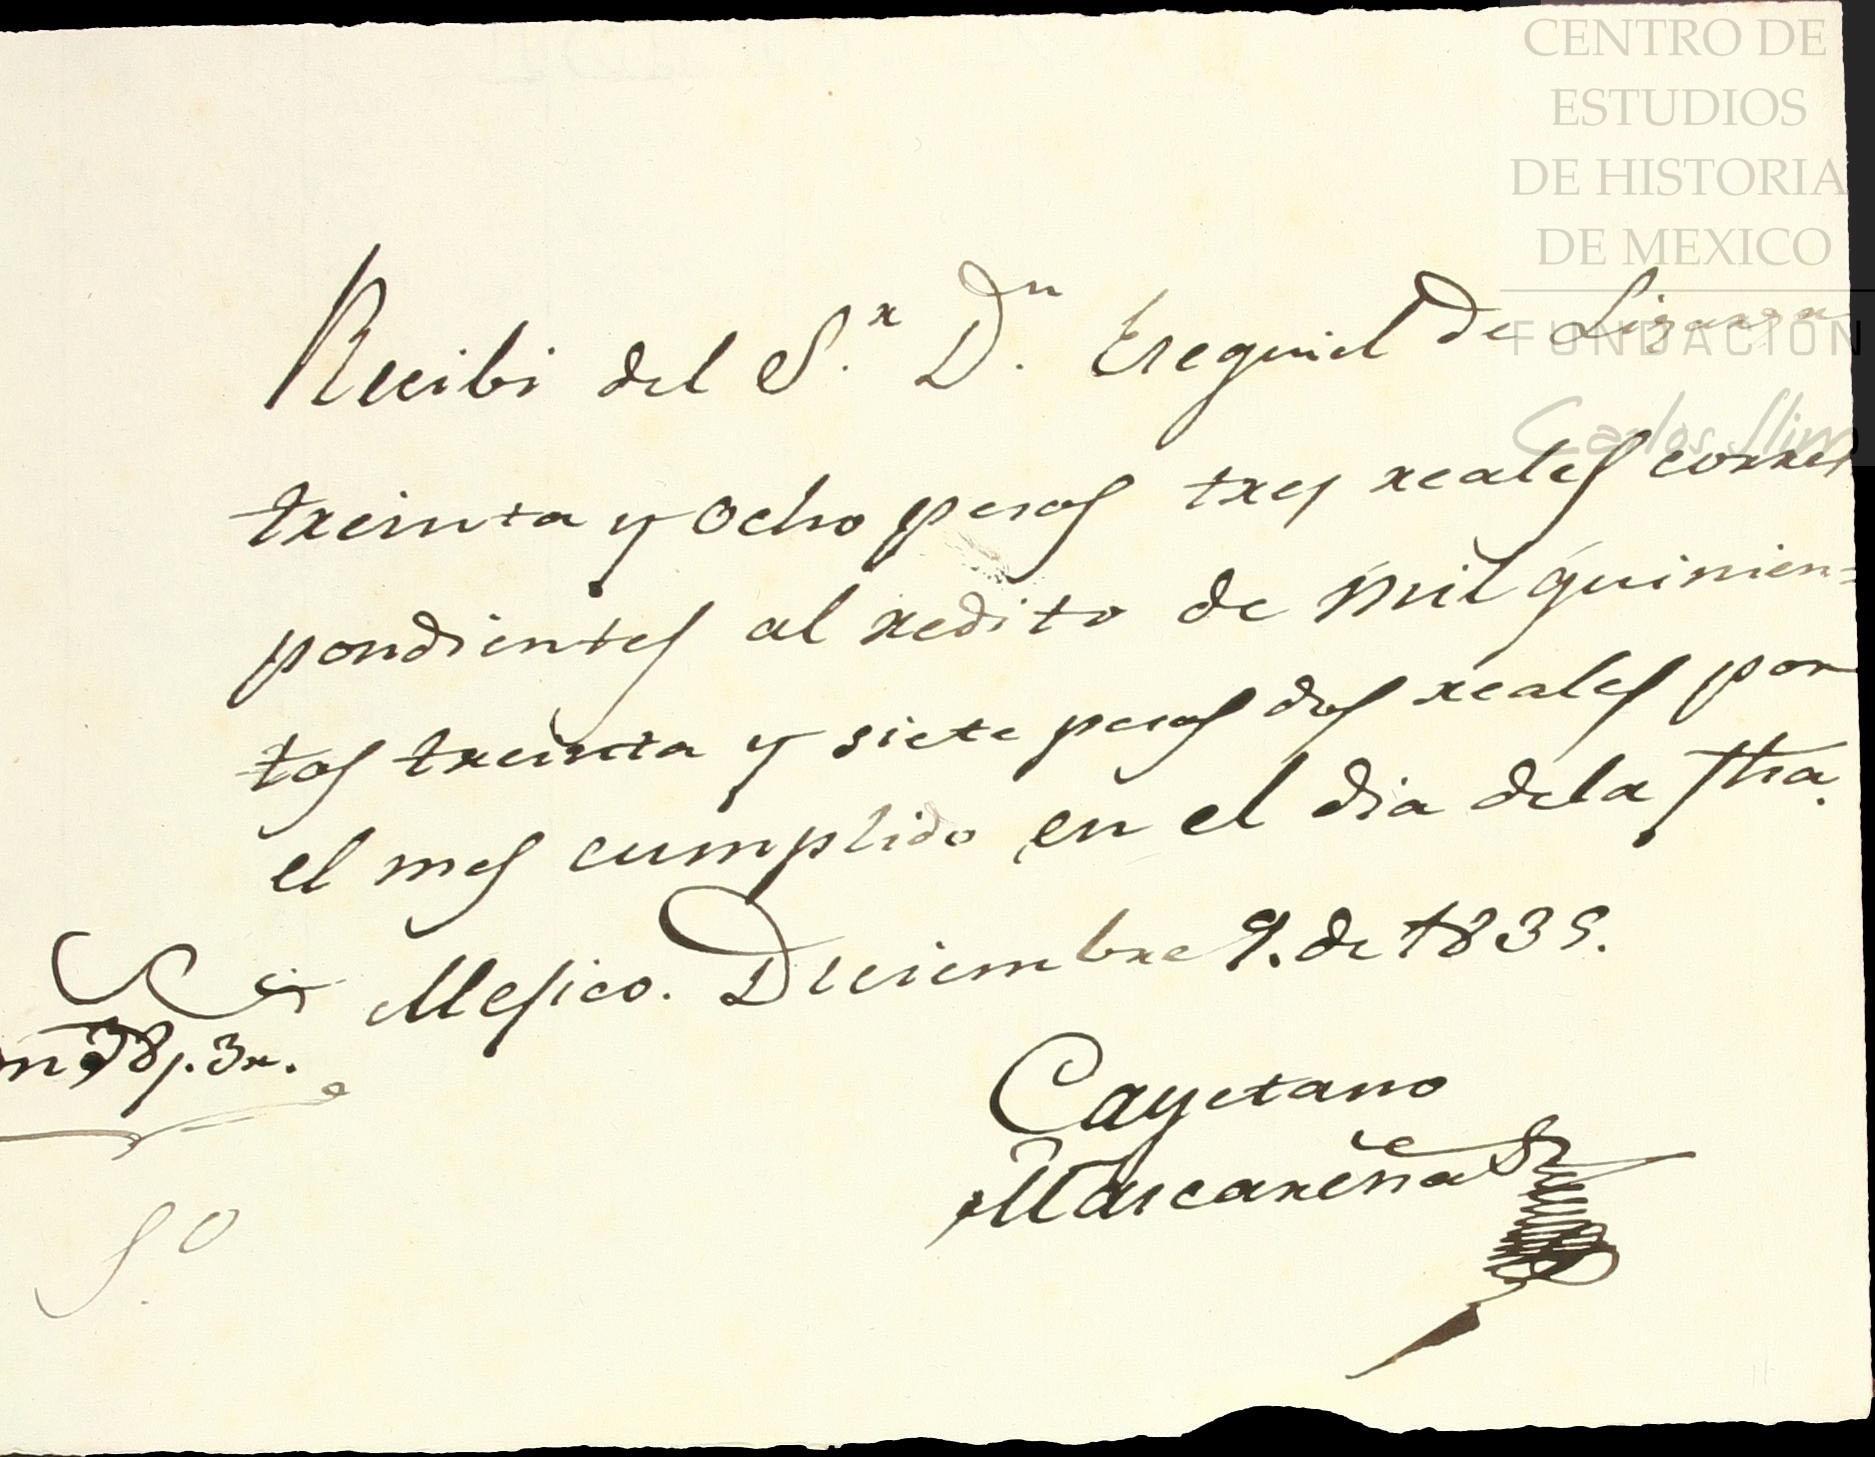 CENTRO DE
ESTUDIOS
DE HISTORIA
DE MEXICO
FUNDACIÓN
Carlos Slim
Recibi del S.r D.n Esequiel de Lizarza
treinta y ocho pesos tres reales corres
pondientes al redito de mil quinien=
tos treinta y siete pesos dos reales por
el mes cumplido en el dia dela fha.
Mejico. Diciembre 9. de 1839.
38p. 3r.
Cayetano
Mascareñas